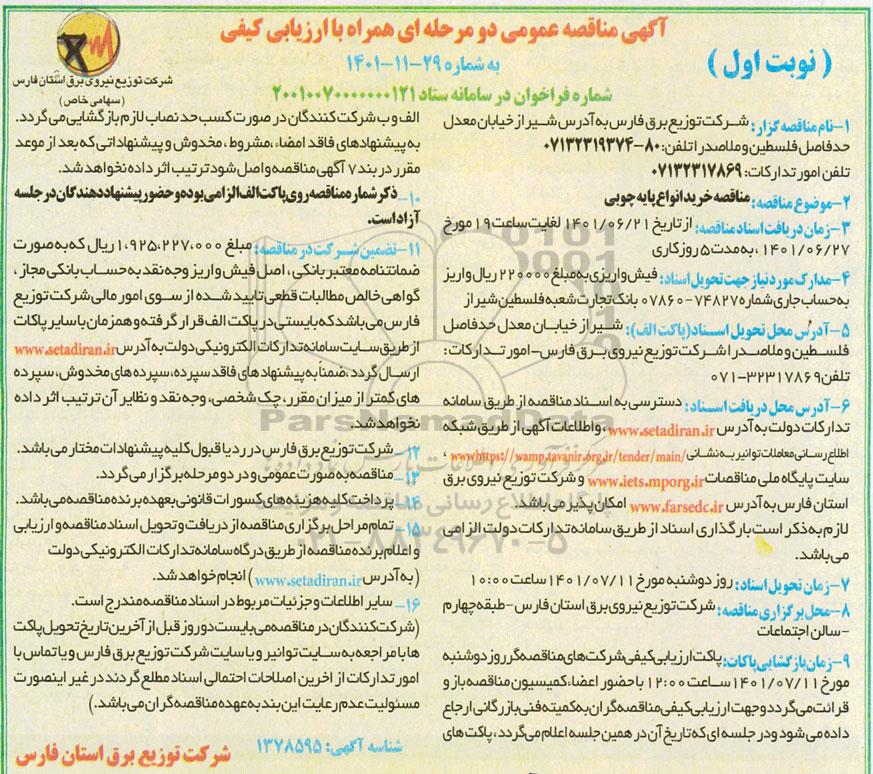 آگهی مناقصه عمومی دو مرحله ای همراه با ارزیابی کیفی
به شماره ۲۹-۱۱-۱۴۰۱
( نوبت اول )
شماره فراخوان در سامانه ستاد ۲۰۰۱۰۰۷۰۰۰۰۰۰۰۱۲۱
شرکت توزیع نیروی برق استان فارس
(سهامی خاص)
۱-نام مناقصه گزار: شرکت توزیع برق فارس به آدرس شیراز خیابان معدل
حدفاصل فلسطین و ملاصدرا تلفن: ۸۰-۰۷۱۳۲۳۱۹۳۷۴
تلفن امور تدارکات: ۰۷۱۳۲۳۱۷۸۶۹
۲-موضوع مناقصه: مناقصه خرید انواع پایه چوبی
۳-زمان دریافت اسناد مناقصه: از تاریخ ۱۴۰۱/۰۶/۲۱ لغایت ساعت ۱۹ مورخ
۱۴۰۱/۰۶/۲۷ ، به مدت ۵ روز کاری
۴-مدارک مورد نیاز جهت تحویل اسناد: فیش واریزی به مبلغ ۲۲۰۰۰۰ ریال واریز
به حساب جاری شماره ۷۴۸۲۷-۰۷۸۶۰ بانک تجارت شعبه فلسطین شیراز
۵-آدرس محل تحویل اسناد(پاکت الف): شیراز خیابان معدل حدفاصل
فلسطین و ملاصدرا شرکت توزیع نیروی برق فارس-امور تدارکات:
تلفن ۳۲۳۱۷۸۶۹-۰۷۱
۶-آدرس محل دریافت اسناد: دسترسی به اسناد مناقصه از طریق سامانه
تدارکات دولت به آدرس www.setadiran.ir، و اطلاعات آگهی از طریق شبکه
اطلاع رسانی معاملات توانیر به نشانی wwwhttps://wamp.tavanir.org.ir/tender/main/ ،
سایت پایگاه ملی مناقصات www.iets.mporg.ir و شرکت توزیع نیروی برق
استان فارس به آدرس www.farsedc.ir امکان پذیر می باشد.
لازم به ذکر است بارگذاری اسناد از طریق سامانه تدارکات دولت الزامی
می باشد.
۷-زمان تحویل اسناد: روز دوشنبه مورخ ۱۴۰۱/۰۷/۱۱ ساعت ۱۰:۰۰
۸-محل برگزاری مناقصه: شرکت توزیع نیروی برق استان فارس -طبقه چهارم
-سالن اجتماعات
۹-زمان بازگشایی پاکات: پاکت ارزیابی کیفی شرکت های مناقصه گر روز دوشنبه
مورخ ۱۴۰۱/۰۷/۱۱ ساعت ۱۲:۰۰ با حضور اعضاء کمیسیون مناقصه باز و
قرائت می گردد و جهت ارزیابی کیفی مناقصه گران به کمیته فنی بازرگانی ارجاع
داده می شود و در جلسه ای که تاریخ آن در همین جلسه اعلام می گردد ، پاکت های
الف و ب شرکت کنندگان در صورت کسب حد نصاب لازم بازگشایی می گردد.
به پیشنهادهای فاقد امضاء ،مشروط ، مخدوش و پیشنهاداتی که بعد از موعد
مقرر در بند ۷ آگهی مناقصه واصل شود ترتیب اثر داده نخواهد شد.
۱۰-ذکر شماره مناقصه روی پاکت الف الزامی بوده و حضور پیشنهاددهندگان در جلسه
آزاد است.
۱۱-تضمین شرکت در مناقصه: مبلغ ۱،۹۲۵،۲۲۷،۰۰۰ ریال که به صورت
ضمانتنامه معتبر بانکی ، اصل فیش واریز وجه نقد به حساب بانکی مجاز ،
گواهی خالص مطالبات قطعی تایید شده از سوی امور مالی شرکت توزیع
فارس می باشد که بایستی در پاکت الف قرار گرفته و همزمان با سایر پاکات
از طریق سایت سامانه تدارکات الکترونیکی دولت به آدرس www.setadiran.ir
ارسال گردد ،ضمناً به پیشنهادهای فاقد سپرده، سپرده های مخدوش، سپرده
های کمتر از میزان مقرر، چک شخصی، وجه نقد و نظایر آن ترتیب اثر داده
نخواهد شد.
۱۲-شرکت توزیع برق فارس در رد یا قبول کلیه پیشنهادات مختار می باشد.
۱۳-مناقصه به صورت عمومی و در دو مرحله برگزار می گردد.
۱۴-پرداخت کلیه هزینه های کسورات قانونی بعهده برنده مناقصه می باشد.
۱۵-تمام مراحل برگزاری مناقصه از دریافت و تحویل اسناد مناقصه و ارزیابی
و اعلام برنده مناقصه از طریق درگاه سامانه تدارکات الکترونیکی دولت
( به آدرس www.setadiran.ir ) انجام خواهد شد.
۱۶-سایر اطلاعات و جزئیات مربوط در اسناد مناقصه مندرج است.
(شرکت کنندگان در مناقصه می بایست دو روز قبل از آخرین تاریخ تحویل پاکت
ها با مراجعه به سایت توانیر و یا سایت شرکت توزیع برق فارس و یا تماس با
امور تدارکات از اخرین اصلاحات احتمالی اسناد مطلع گردند در غیر اینصورت
مسئولیت عدم رعایت این بند به عهده مناقصه گران می باشد.)
شناسه آگهی: ۱۳۷۸۵۹۵
شرکت توزیع برق استان فارس
ParsNamadData
۰۲۱-۸۸۳۴۹۶۷۰-۵